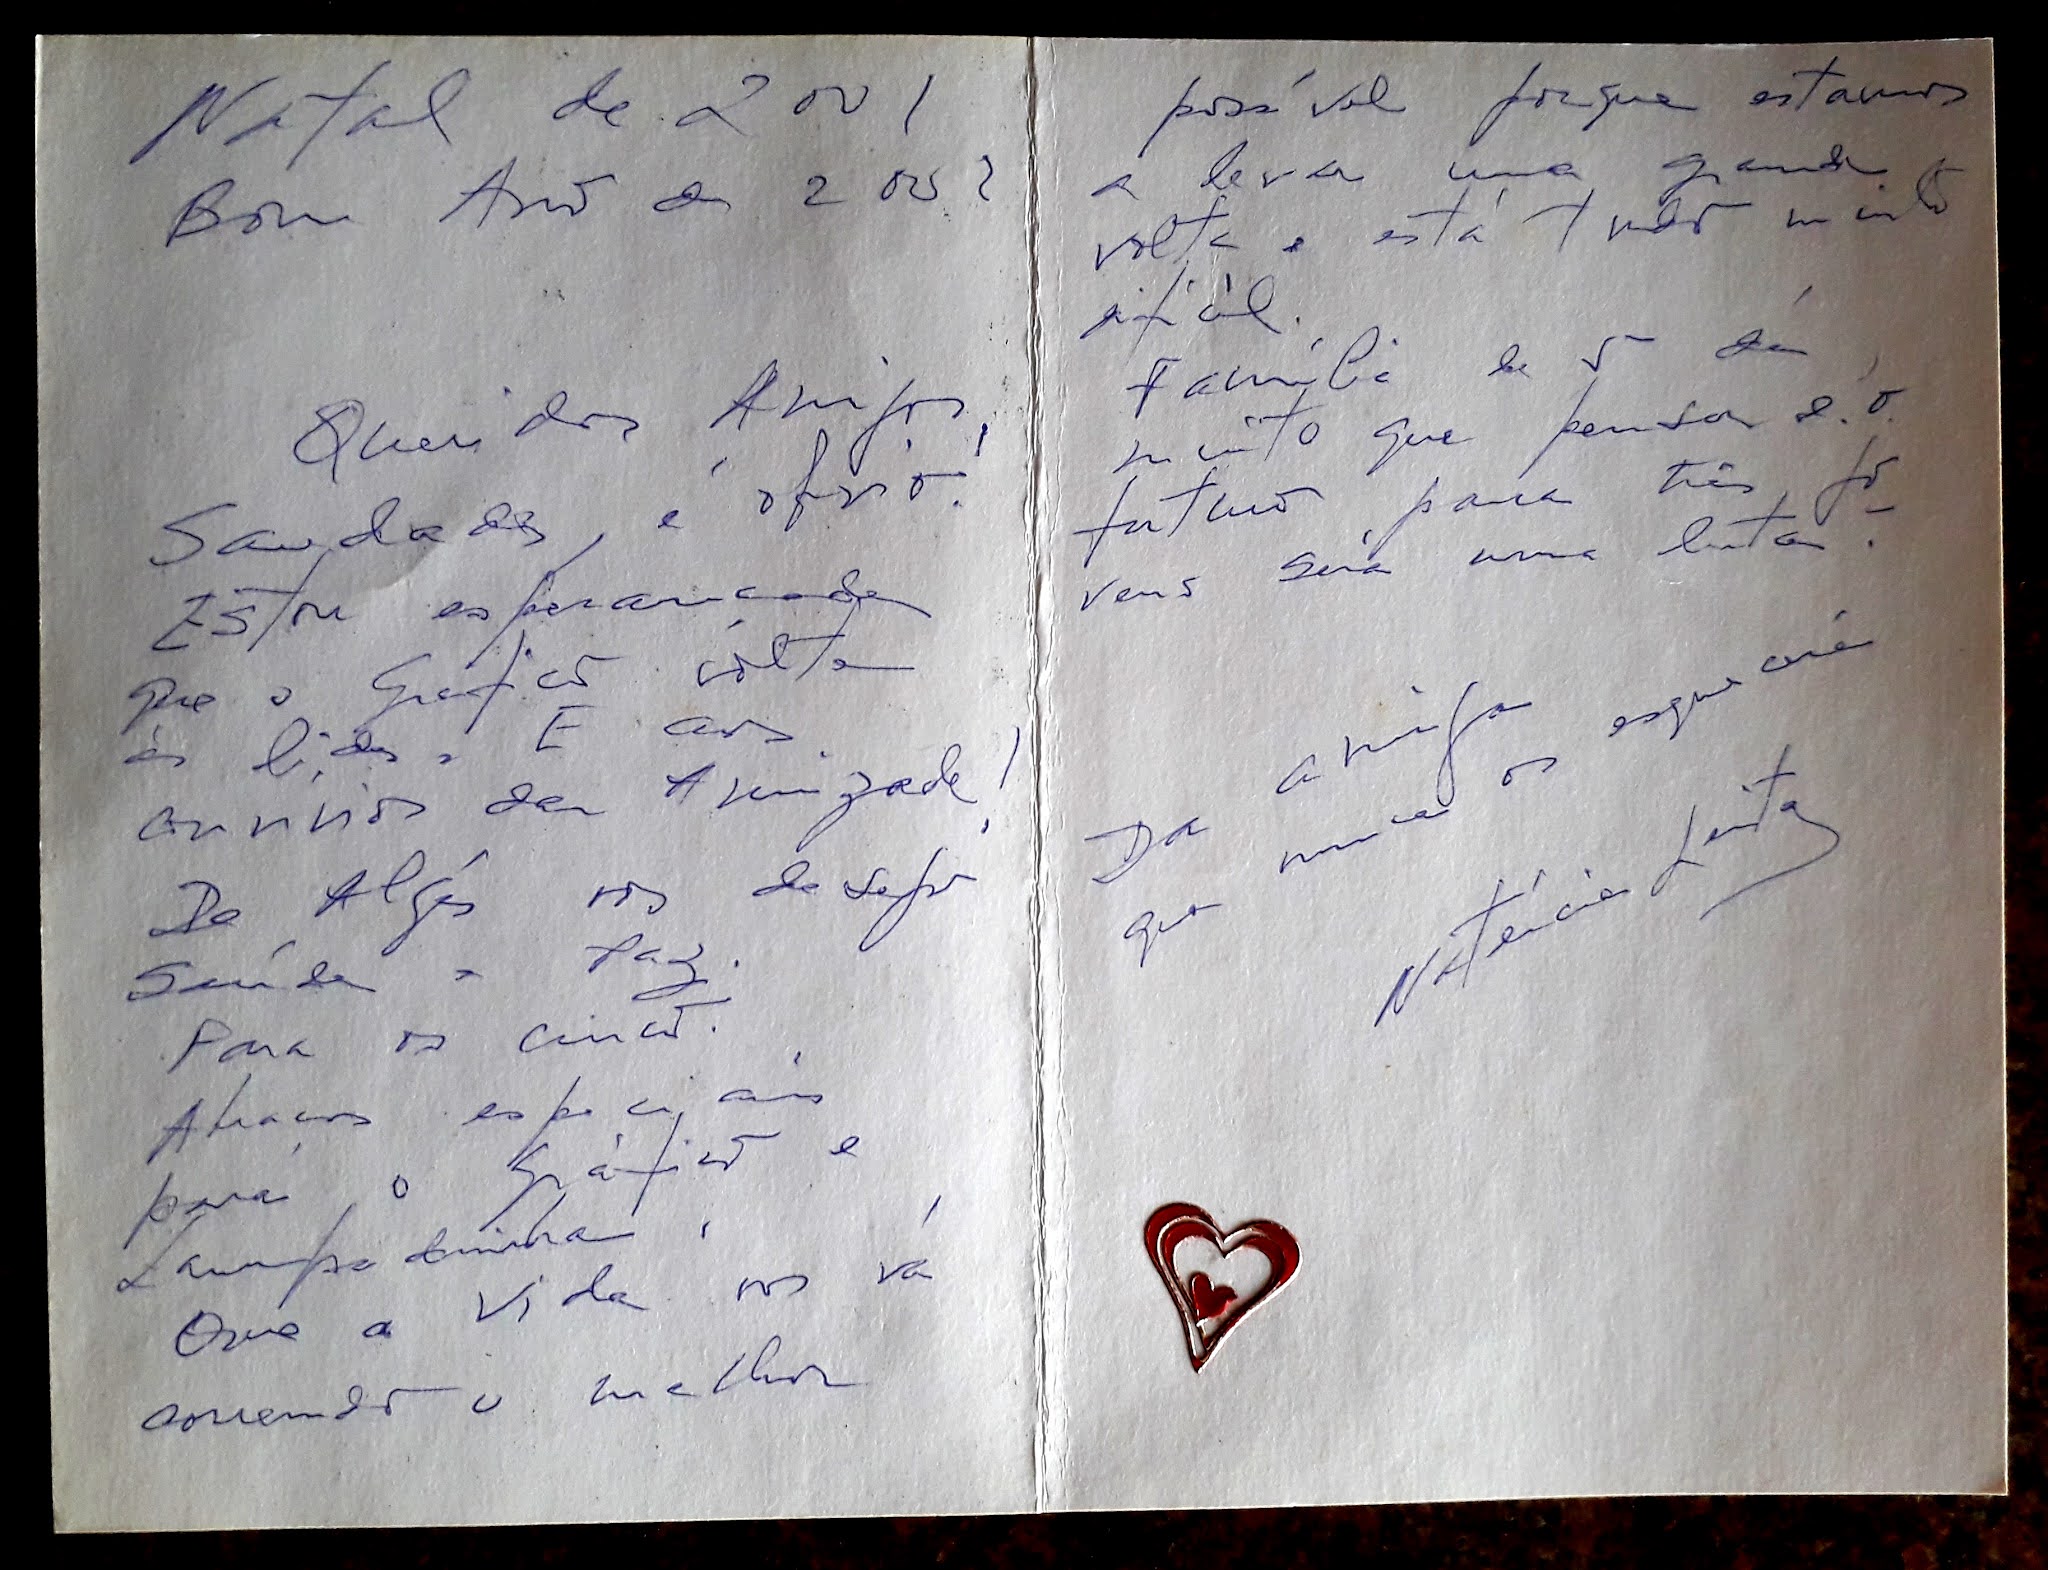 Natal de 2001
Bom Ano de 2002
Queridos Amigos,
Saudades, é óbvio!
Estou esperançada
que o Gráfico volte
às lides. E aos
convívios da Amizade!
De Algés vos desejo
Saúde e Paz.
Para os cinco.
Abraços especiais
para o Gráfico e
Lampadinha.
Que a vida vos vá
correndo o melhor
possível porque estamos
a levar uma grande
volta e está tudo muito
difícil.
Família de 5 dá
muito que pensar e o
futuro para três jo-
vens será uma luta.
Da amiga
que nunca os esquecerá
Natércia